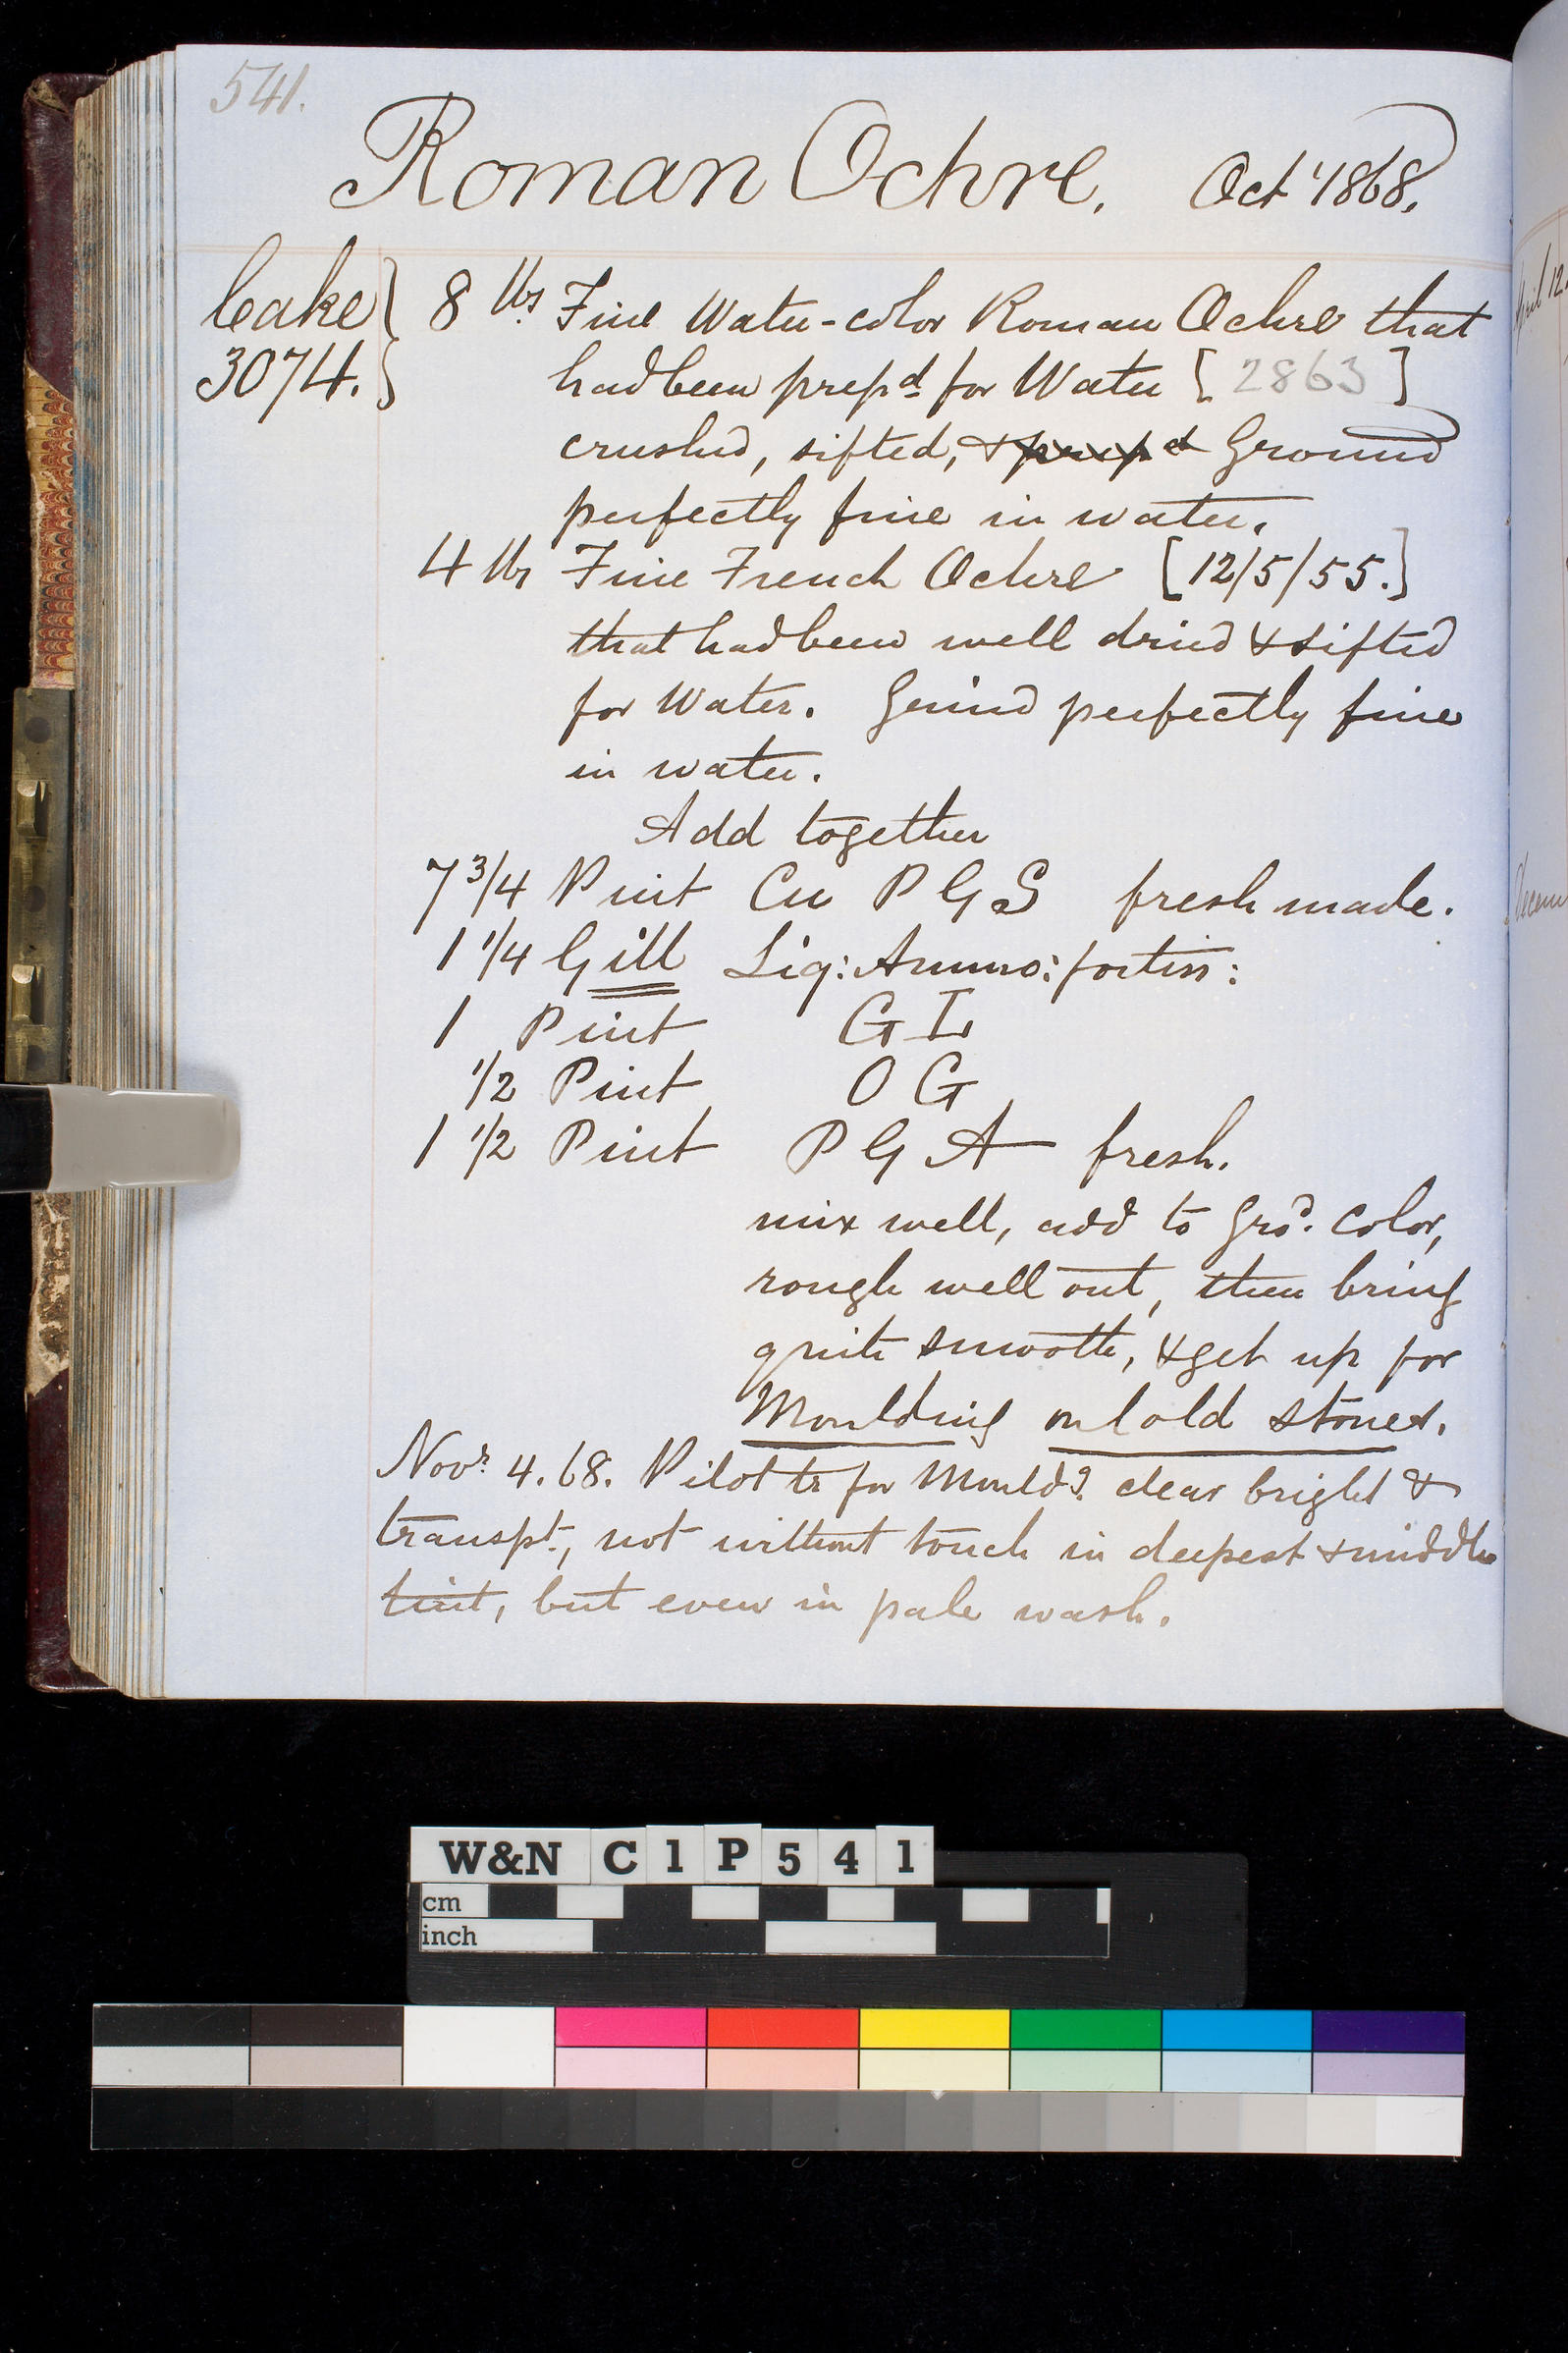 541.
Roman Ochre. Oct 1868.
Cake } 8 lbs Fine Water-color Roman Ochre that
3074. } had been prepd for Water [2863]
crushed, sifted, & prepd Ground
perfectly fine in water.
4 lbs Fine French Ochre [12/5/55.]
that had been well dried & sifted
for Water. Grind perfectly fine
in water.
Add together
7 3/4 Pint Cu P G S fresh made.
1 1/4 Gill Liq: Ammo: fortiss:
1 Pint G L
1/2 Pint O G
1 1/2 Pint P G A fresh.
mix well, add to Grod. Color,
rough well out, then bring
quite smooth, & get up for
Moulding on old stones.
Novr. 4. 68. Pilot tr for Mouldg. clear bright &
transpt., not without touch in deepest & middle
tint, but even in pale wash.
April 12.
Decem
W&N C1P541
cm
inch